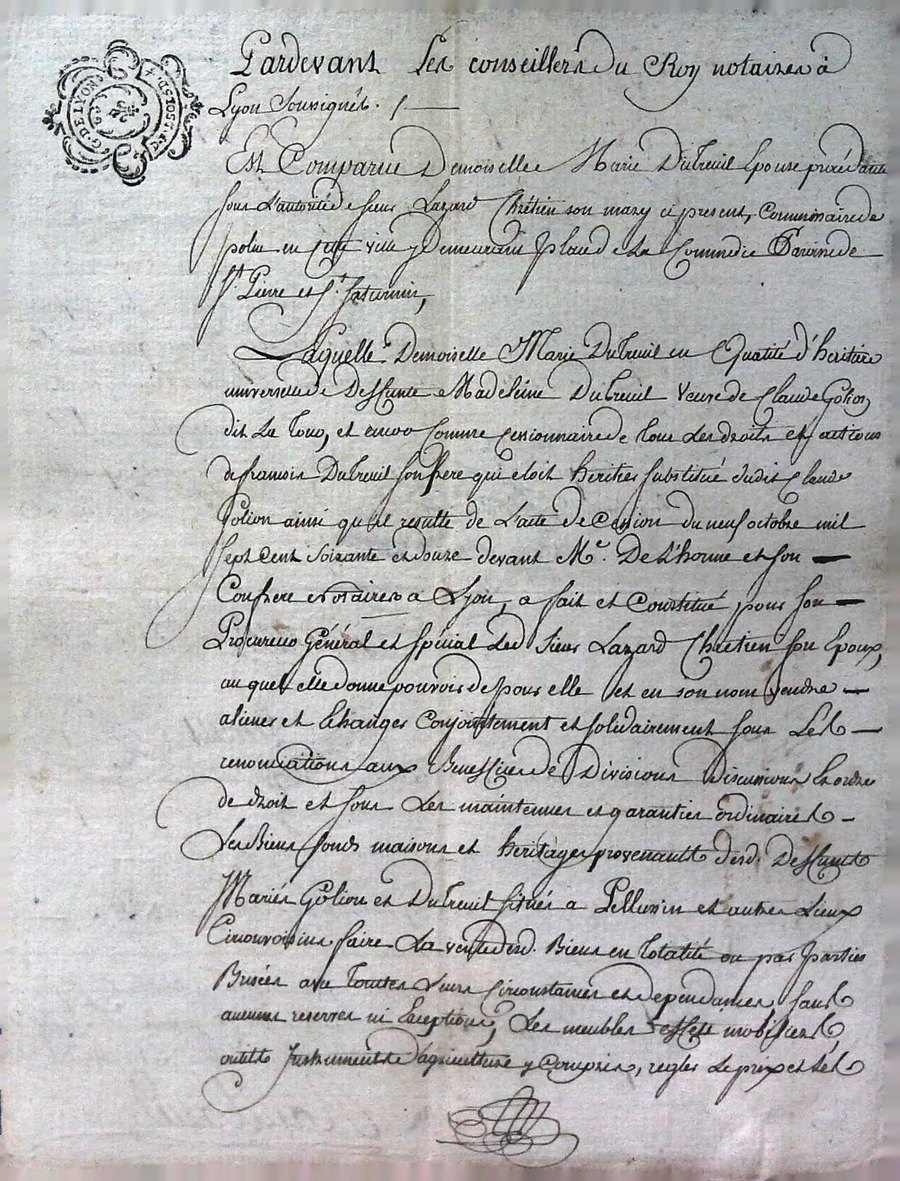 G. DE LYON
Pardevant Les conseillers du Roy notaires à
Lyon Soussignés.
Est Comparue Demoiselle Marie Dutreuil Epouse procédante
sous L'autorité de sieur Lazard Chrétien son mary ci present, Commissaire de
police en cette ville y demeurant place de La Commedie Paroisse de
St. Pierre et St. Saturnin,
Laquelle Demoiselle Marie Dutreuil en Qualité d'heritiere
universelle de Deffunte Madeleine Dutreuil Veuve de Claude Golion
dit La Tour, et encor Comme Cessionnaire de tous Les droits et actions
de francois Dutreuil son frere qui etoit heritier substitué dudit Claude
Golion ainsi qu'il resulte de L'acte de Cession du neuf octobre mil
sept Cent Soixante et douze devant Me. De L'horme et son
Confrere Notaires a Lyon, a fait et Constitué pour son
Procureur Général et spécial led. sieur Lazard Chretien son Epoux,
au quel elle donne pouvoir de pour elle et en son nom vendre
aliener et Echanger Conjointement et solidairement sous Les
renonciations aux Beneffices de Divisions Discussions Et ordre
de droit et sous Les maintenues et garanties ordinaires
Les Biens fonds maisons et heritages provenants desd. Deffunts
Mariés Golion et Dutreuil situés a Pellussin et autres Lieux
Circonvoisins faire La vente desd. Biens en totalité ou par Parties
Brisées avec Toutes Leurs Circonstances et dependances, sans
aucunes reserves ni Exceptions, Les meubles effets mobiliers,
outils Instruments d'agriculture y Compris, regler Le prix et Les